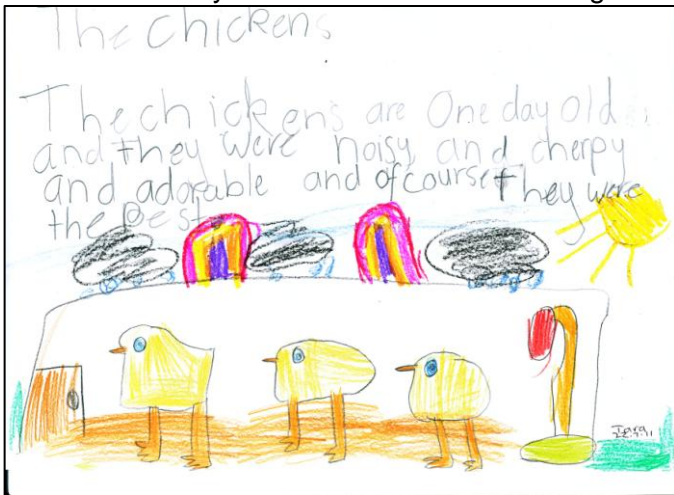 The chickens
The chickens are One day old
and they were noisy and cherpy
and adorable and of course they were
the Best
Tara